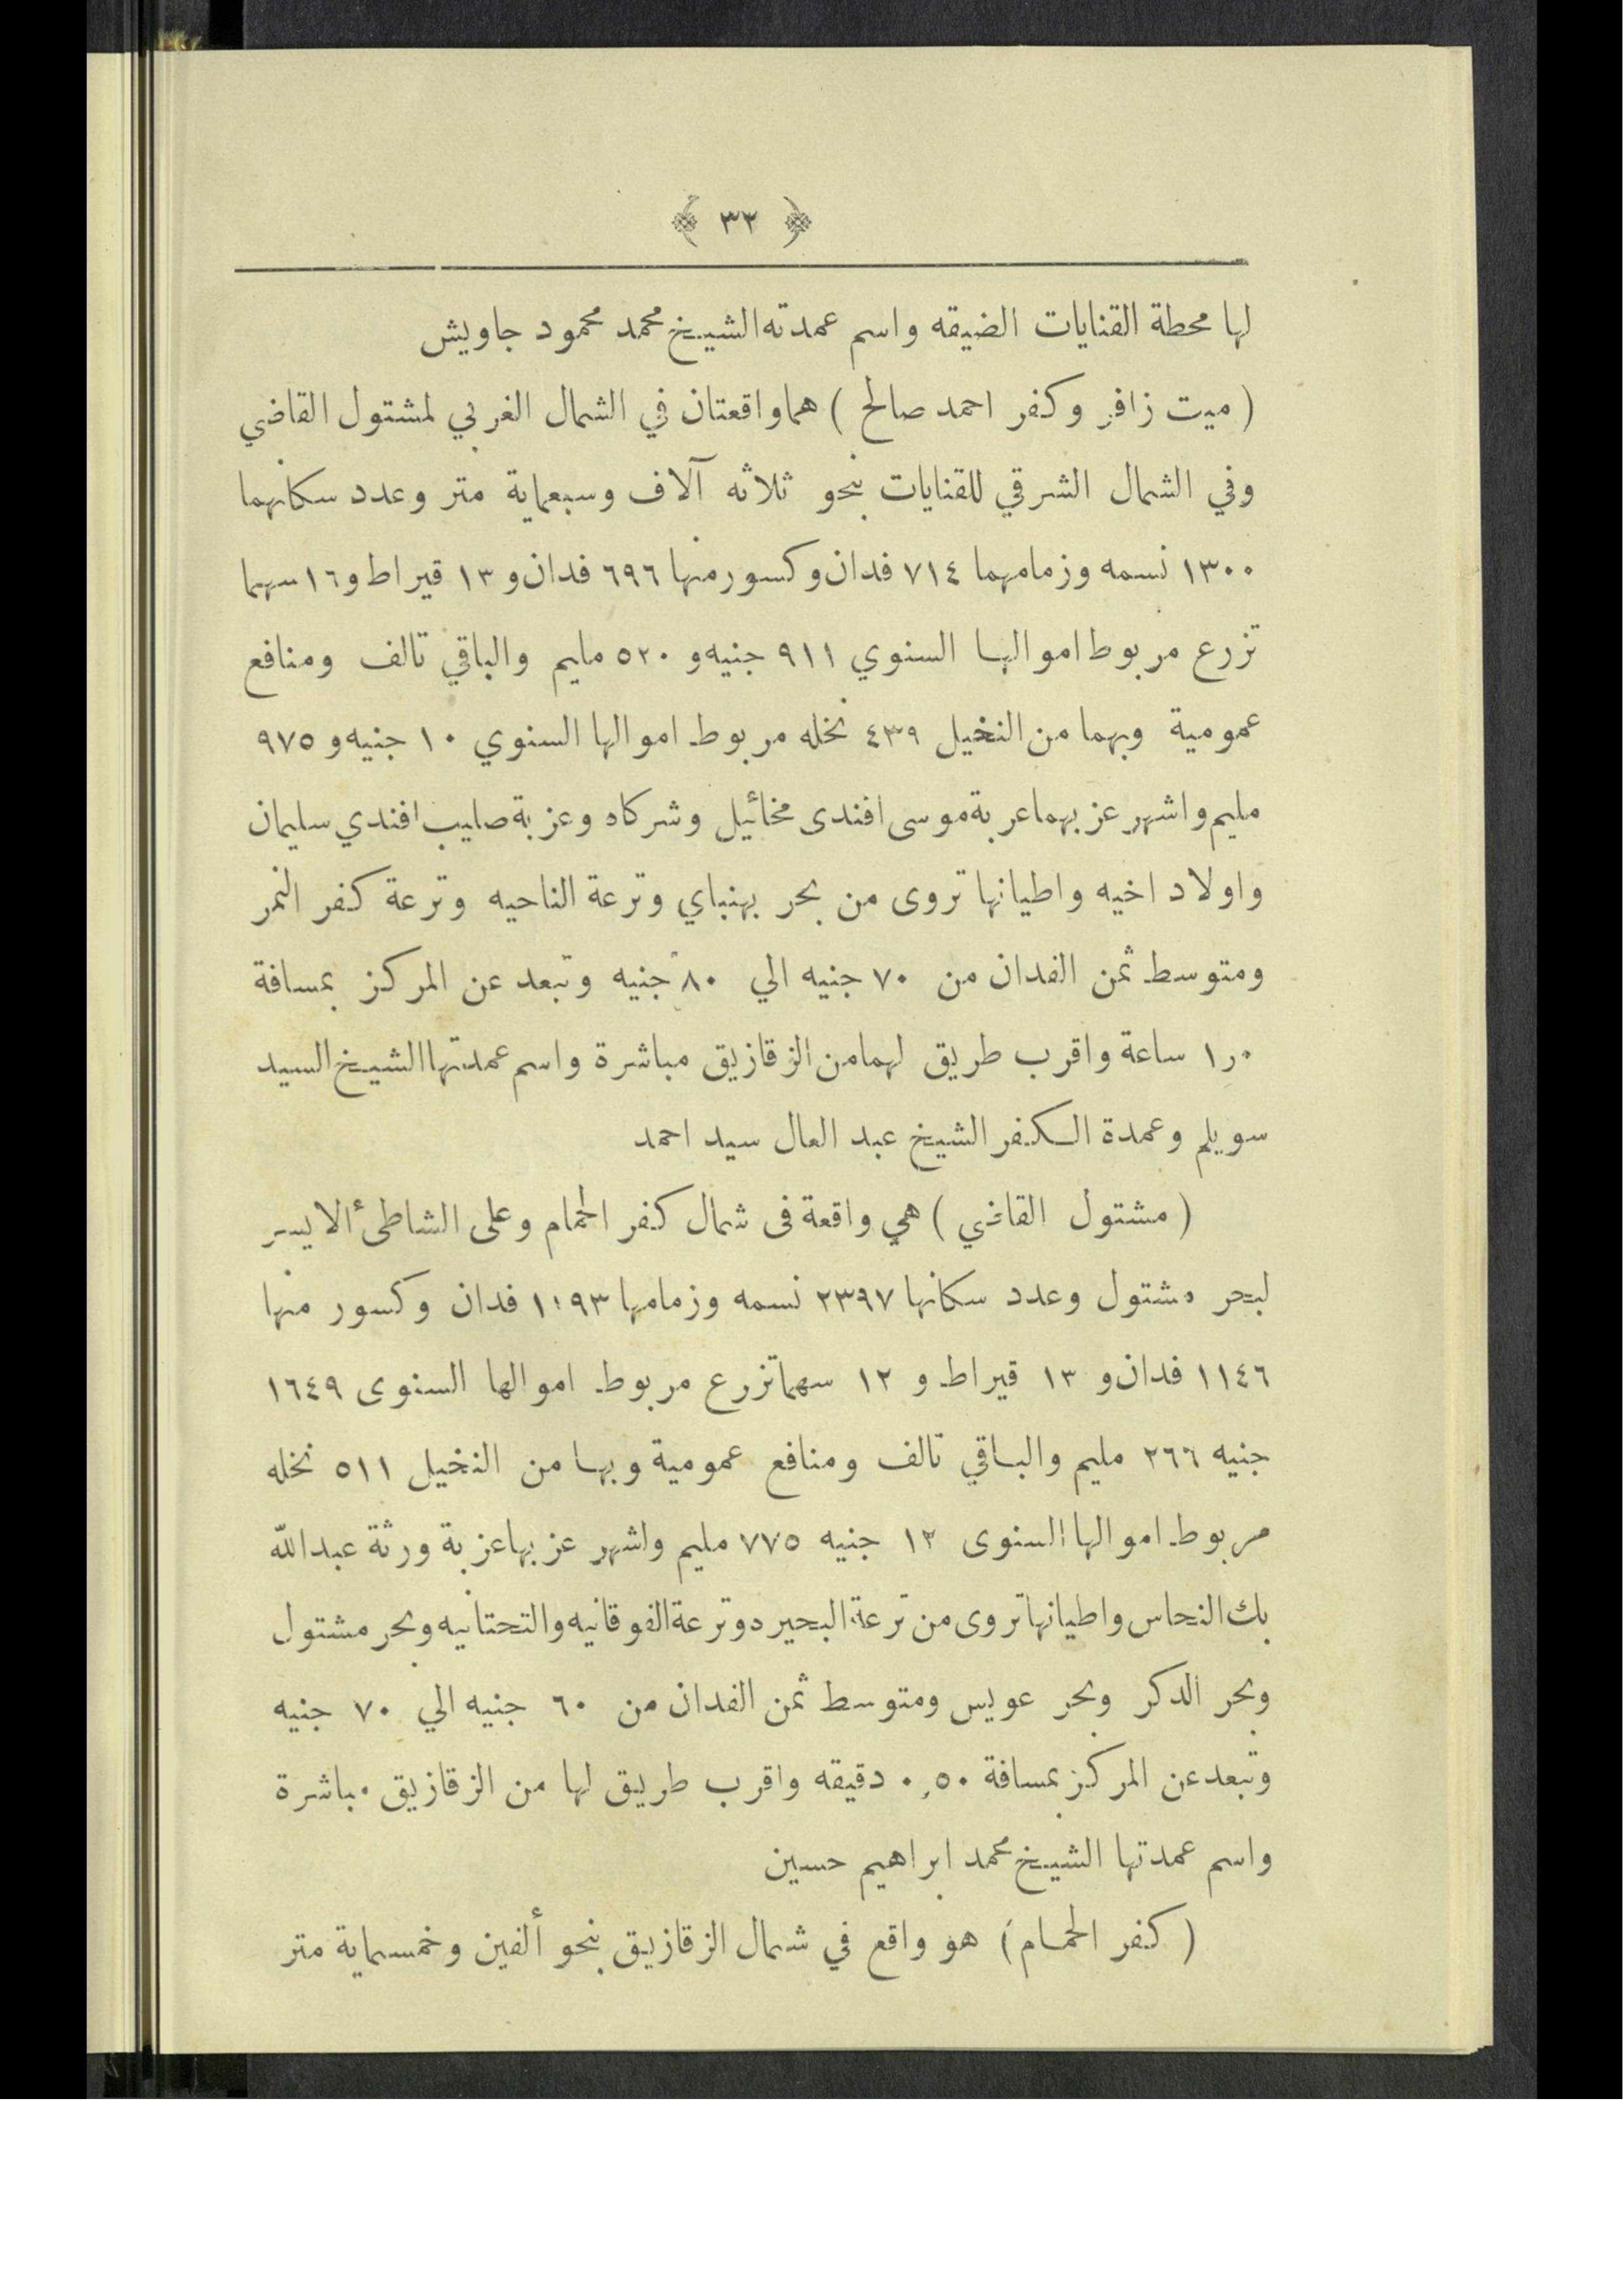 ﴿ ٣٢ ﴾
لها محطة القنايات الضيقه واسم عمدته الشيخ محمد محمود جاويش
( ميت زافر وكفر احمد صالح ) هما واقعتان في الشمال الغربي لمشتول القاضي
وفي الشمال الشرقي للقنايات بنحو ثلاثه آلاف وسبعماية متر وعدد سكانهما
١٣٠٠ نسمه وزمامهما ٧١٤ فدان وكسور منها ٦٩٦ فدان و ١٣ قيراط و ١٦ سهما
تزرع مربوط اموالها السنوي ٩١١ جنيه و ٥٢٠ مليم والباقي تالف ومنافع
عمومية وبهما من النخيل ٤٣٩ نخله مربوط اموالها السنوي ١٠ جنيه و ٩٧٥
مليم واشهر عزبهما عربة موسى افندى مخائيل وشركاه وعزبة صليب افندي سليمان
واولاد اخيه واطيانها تروى من بحر بهنباي وترعة الناحيه وترعة كفر النمر
ومتوسط ثمن الفدان من ٧٠ جنيه الي ٨٠ جنيه وتبعد عن المركز بمسافة
١ر٠ ساعة واقرب طريق لهما من الزقازيق مباشرة واسم عمدتها الشيخ السيد
سويلم وعمدة الكفر الشيخ عبد العال سيد احمد
( مشتول القاضي ) هي واقعة فى شمال كفر الحمام وعلى الشاطئ الايسر
لبحر مشتول وعدد سكانها ٢٣٩٧ نسمه وزمامها فدان وكسور منها
١١٤٦ فدان و ١٣ قيراط و ١٢ سهما تزرع مربوط اموالها السنوى ١٦٤٩
جنيه ٢٦٦ مليم والباقي تالف ومنافع عمومية وبها من النخيل ٥١١ نخله
مربوط اموالها السنوى ١٢ جنيه ٧٧٥ مليم واشهر عزبها عزبة ورثة عبد الله
بك النحاس واطيانها تروى من ترعة البحير دوترعة الفوقانيه والتحتانيه وبحر مشتول
وبحر الدكر وبحر عويس ومتوسط ثمن الفدان من ٦٠ جنيه الي ٧٠ جنيه
وتبعد عن المركز بمسافة ٠,٥٠ دقيقه واقرب طريق لها من الزقازيق مباشرة
واسم عمدتها الشيخ محمد ابراهيم حسين
( كفر الحمام ) هو واقع في شمال الزقازيق بنحو ألفين وخمسماية متر